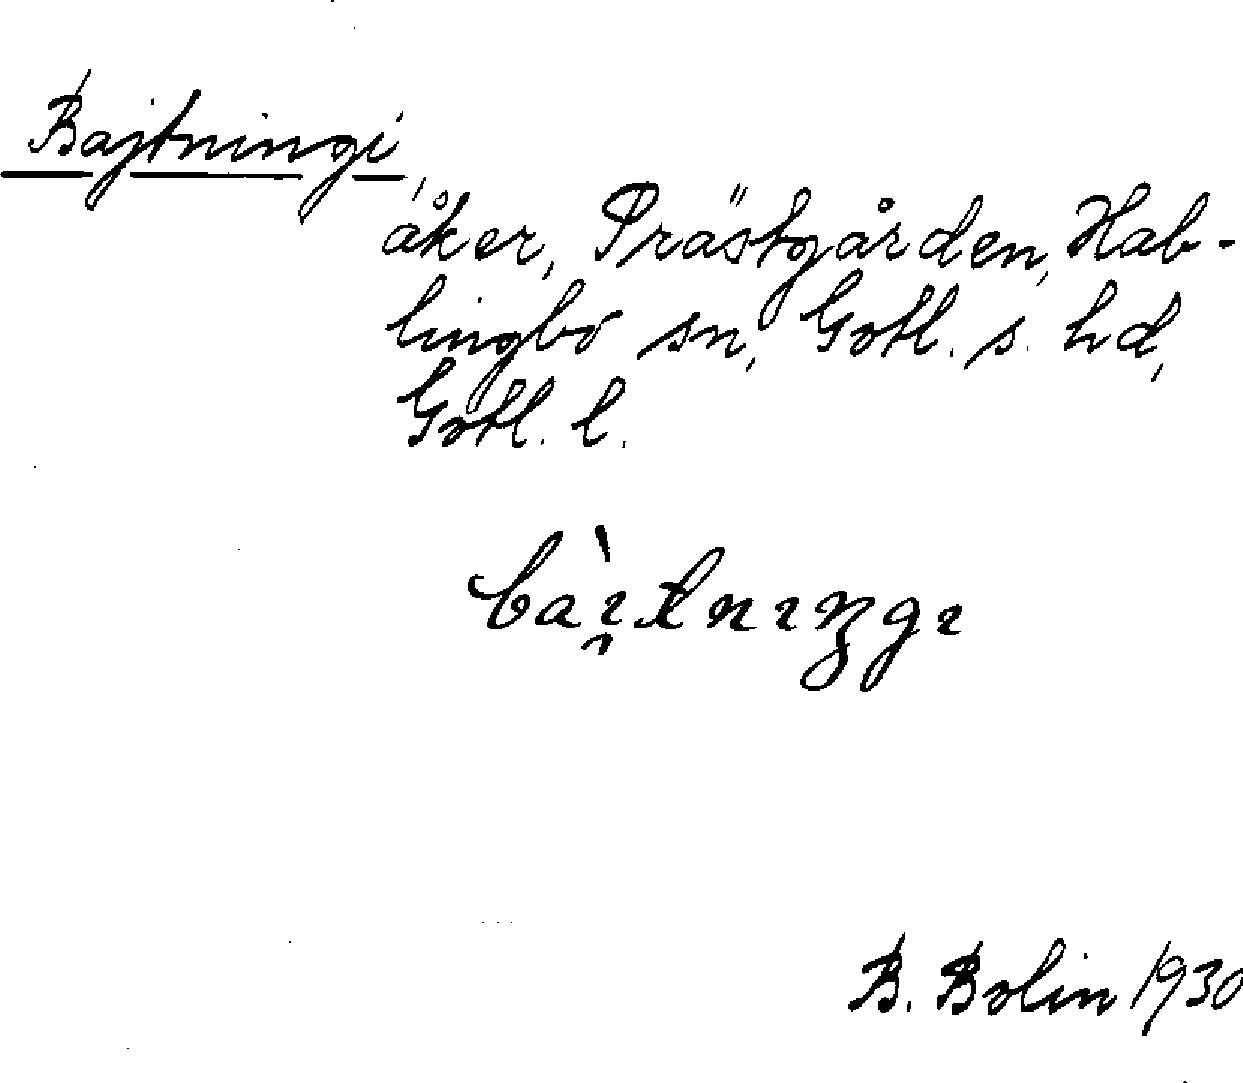 Bajtningi,
åker, Prästgården, Hab-
lingbo sn, Gotl. s. hd,
Gotl. l.
B. Bolin 1930